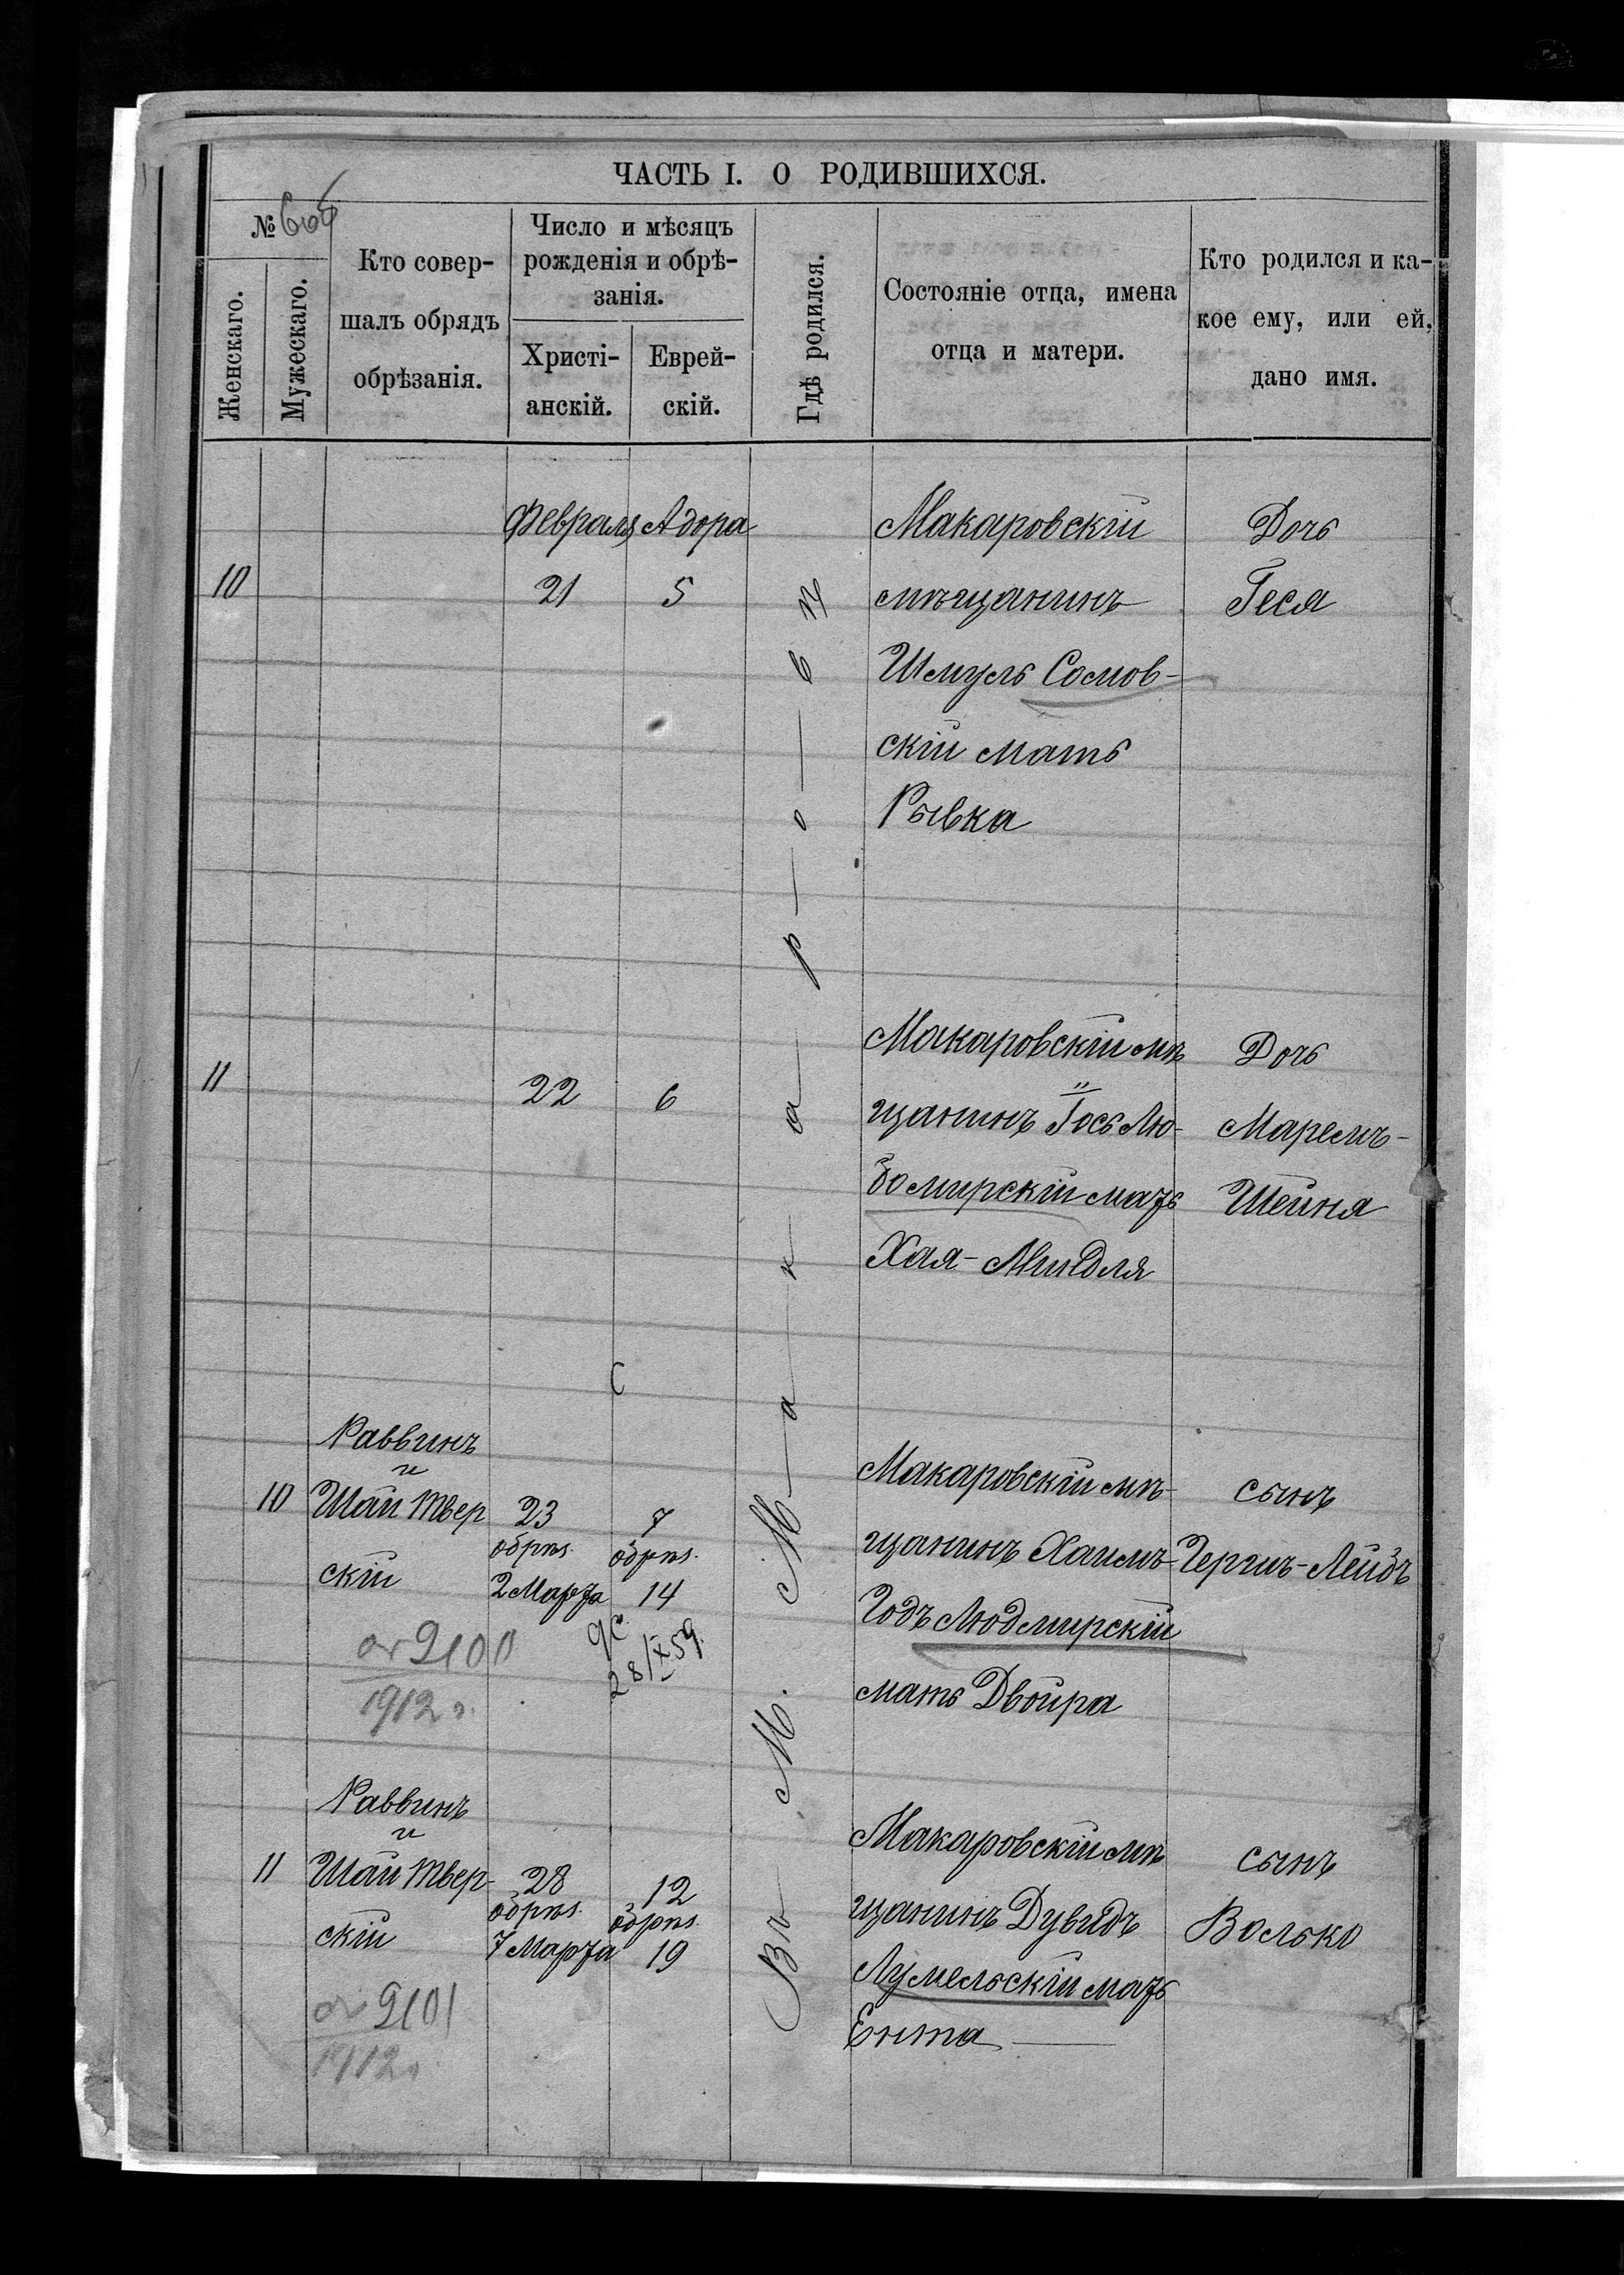 ЧАСТЬ I. О РОДИВШИХСЯ.
№
Женскаго.
Мужескаго.
Кто совер-
шалъ обрядъ
обрѣзанія.
Число и мѣсяцъ
рожденія и обрѣ-
занія.
Христі-
анскій.
Еврей-
скій.
Гдѣ родился.
Состояніе отца, имена
отца и матери.
Кто родился и ка-
кое ему, или ей,
дано имя.
Въ М. М—а—к—а—р—о—в—ѣ
10
Февраля
21
Адора
5
Макаровскій
мѣщанинъ
Шмуль Сомов-
скій мать
Рывка
Дочь
Геся
11
22
6
Макаровскій мѣ
щанинъ Іось Лю-
бомирскій мать
Хая-Миндля
Дочь
Маремъ-
Шейня
10
Раввинъ
и
Шай Твер
скій
от 2100
1912 г.
23
обрѣз.
2 Марта
7
обрѣз.
14
28/X 59
Макаровскій мѣ-
щанинъ Хаимъ-
Годъ Людмирскій
мать Двойра
сынъ
Гершъ-Лейбъ
11
Раввинъ
и
Шай Твер-
скій
от 2101
1912 г.
28
обрѣз.
7 Марта
12
обрѣз.
19
Макаровскій мѣ
щанинъ Дувидъ
Лумельскій мать
Ента
сынъ
Волько